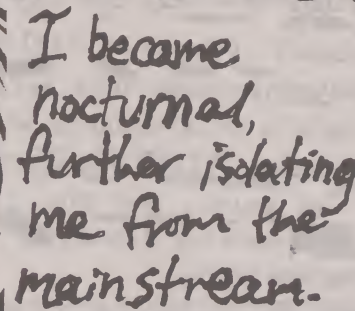 I became
nocturnal,
further isolating
me from the
mainstream.